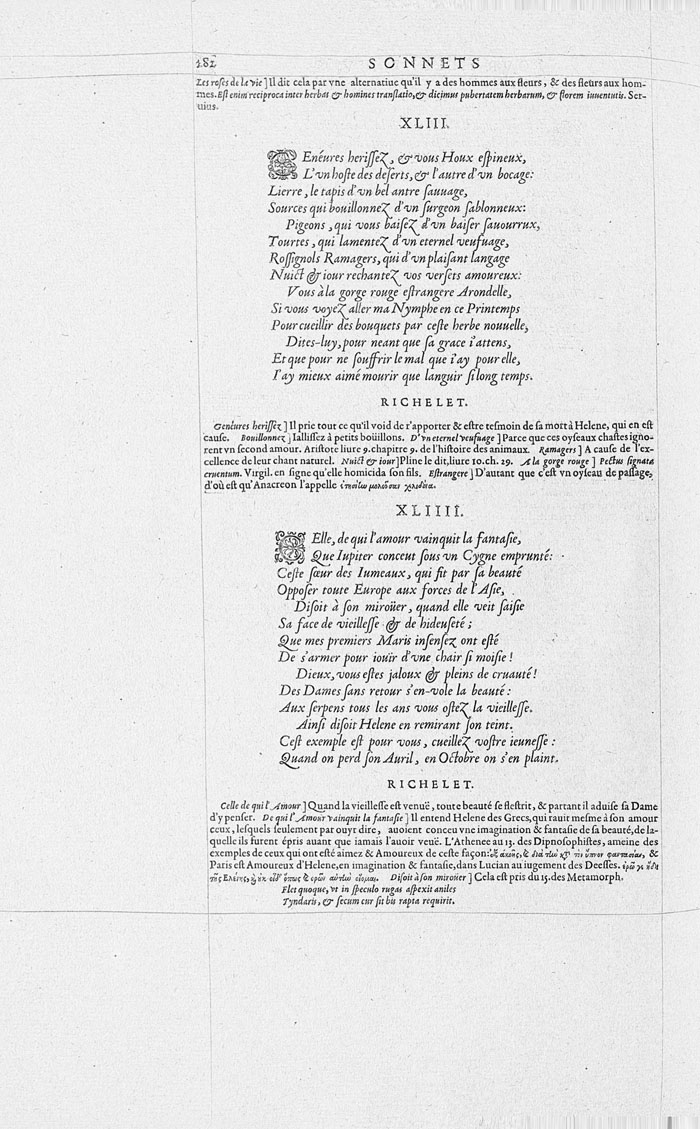 282 SONNETS
Les roses de la vie] Il dit cela par vne alternatiue qu'il y a des hommes aux fleurs, & des fleurs aux hom-
mes. Est enim reciproca inter herbas & homines translatio, & dicimus pubertatem herbarum, & florem iuuentutis. Ser-
uius.
XLIII.
Genéures herissez, & vous Houx espineux,
L'vn hoste des deserts, & l'autre d'vn bocage:
Lierre, le tapis d'vn bel antre sauuage,
Sources qui bouillonnez d'vn surgeon sablonneux:
Pigeons, qui vous baisez d'vn baiser sauourrux,
Tourtes, qui lamentez d'vn eternel veufuage,
Rossignols Ramagers, qui d'vn plaisant langage
Nuict & iour rechantez vos versets amoureux:
Vous à la gorge rouge estrangere Arondelle,
Si vous voyez aller ma Nymphe en ce Printemps
Pour cueillir des bouquets par ceste herbe nouuelle,
Dites-luy, pour neant que sa grace i'attens,
Et que pour ne souffrir le mal que i'ay pour elle,
I'ay mieux aimé mourir que languir si long temps.
RICHELET.
Genéures herissez] Il prie tout ce qu'il void de r'apporter & estre tesmoin de sa mort à Helene, qui en est
cause. Bouillonnez] Iallissez à petits boüillons. D'vn eternel veufuage] Parce que ces oyseaux chastes igno-
rent vn second amour. Aristote liure 9. chapitre 9. de l'histoire des animaux. Ramagers] A cause de l'ex-
cellence de leur chant naturel. Nuict & iour] Pline le dit, liure 10. ch. 29. A la gorge rouge] Pectus signata
cruentum. Virgil. en signe qu'elle homicida son fils. Estrangere] D'autant que c'est vn oyseau de passage,
d'où est qu'Anacreon l'appelle
XLIIII.
Celle, de qui l'amour vainquit la fantasie,
Que Iupiter conceut sous vn Cygne emprunté:
Ceste sœur des Iumeaux, qui fit par sa beauté
Opposer toute Europe aux forces de l'Asie,
Disoit à son miroüer, quand elle veit saisie
Sa face de vieillesse & de hideuseté;
Que mes premiers Maris insensez ont esté
De s'armer pour iouïr d'vne chair si moisie!
Dieux, vous estes jaloux & pleins de cruauté!
Des Dames sans retour s'en-vole la beauté:
Aux serpens tous les ans vous ostez la vieillesse.
Ainsi disoit Helene en remirant son teint.
Cest exemple est pour vous, cueillez vostre ieunesse:
Quand on perd son Auril, en Octobre on s'en plaint.
RICHELET.
Celle de qui l'Amour] Quand la vieillesse est venuë, toute beauté se flestrit, & partant il aduise sa Dame
d'y penser. De qui l'Amour vainquit la fantasie] Il entend Helene des Grecs, qui rauit mesme à son amour
ceux, lesquels seulement par ouyr dire, auoient conceu vne imagination & fantasie de sa beauté, de la-
quelle ils furent épris auant que iamais l'auoir veuë. L'Athenee au 13. des Dipnosophistes, ameine des
exemples de ceux qui ont esté aimez & Amoureux de ceste façon: &
Paris est Amoureux d'Helene, en imagination & fantasie, dans Lucian au iugement des Deesses.
Disoit à son miroüer] Cela est pris du 15. des Metamorph.
Flet quoque, vt in speculo rugas aspexit aniles
Tyndaris, & secum cur sit bis rapta requirit.